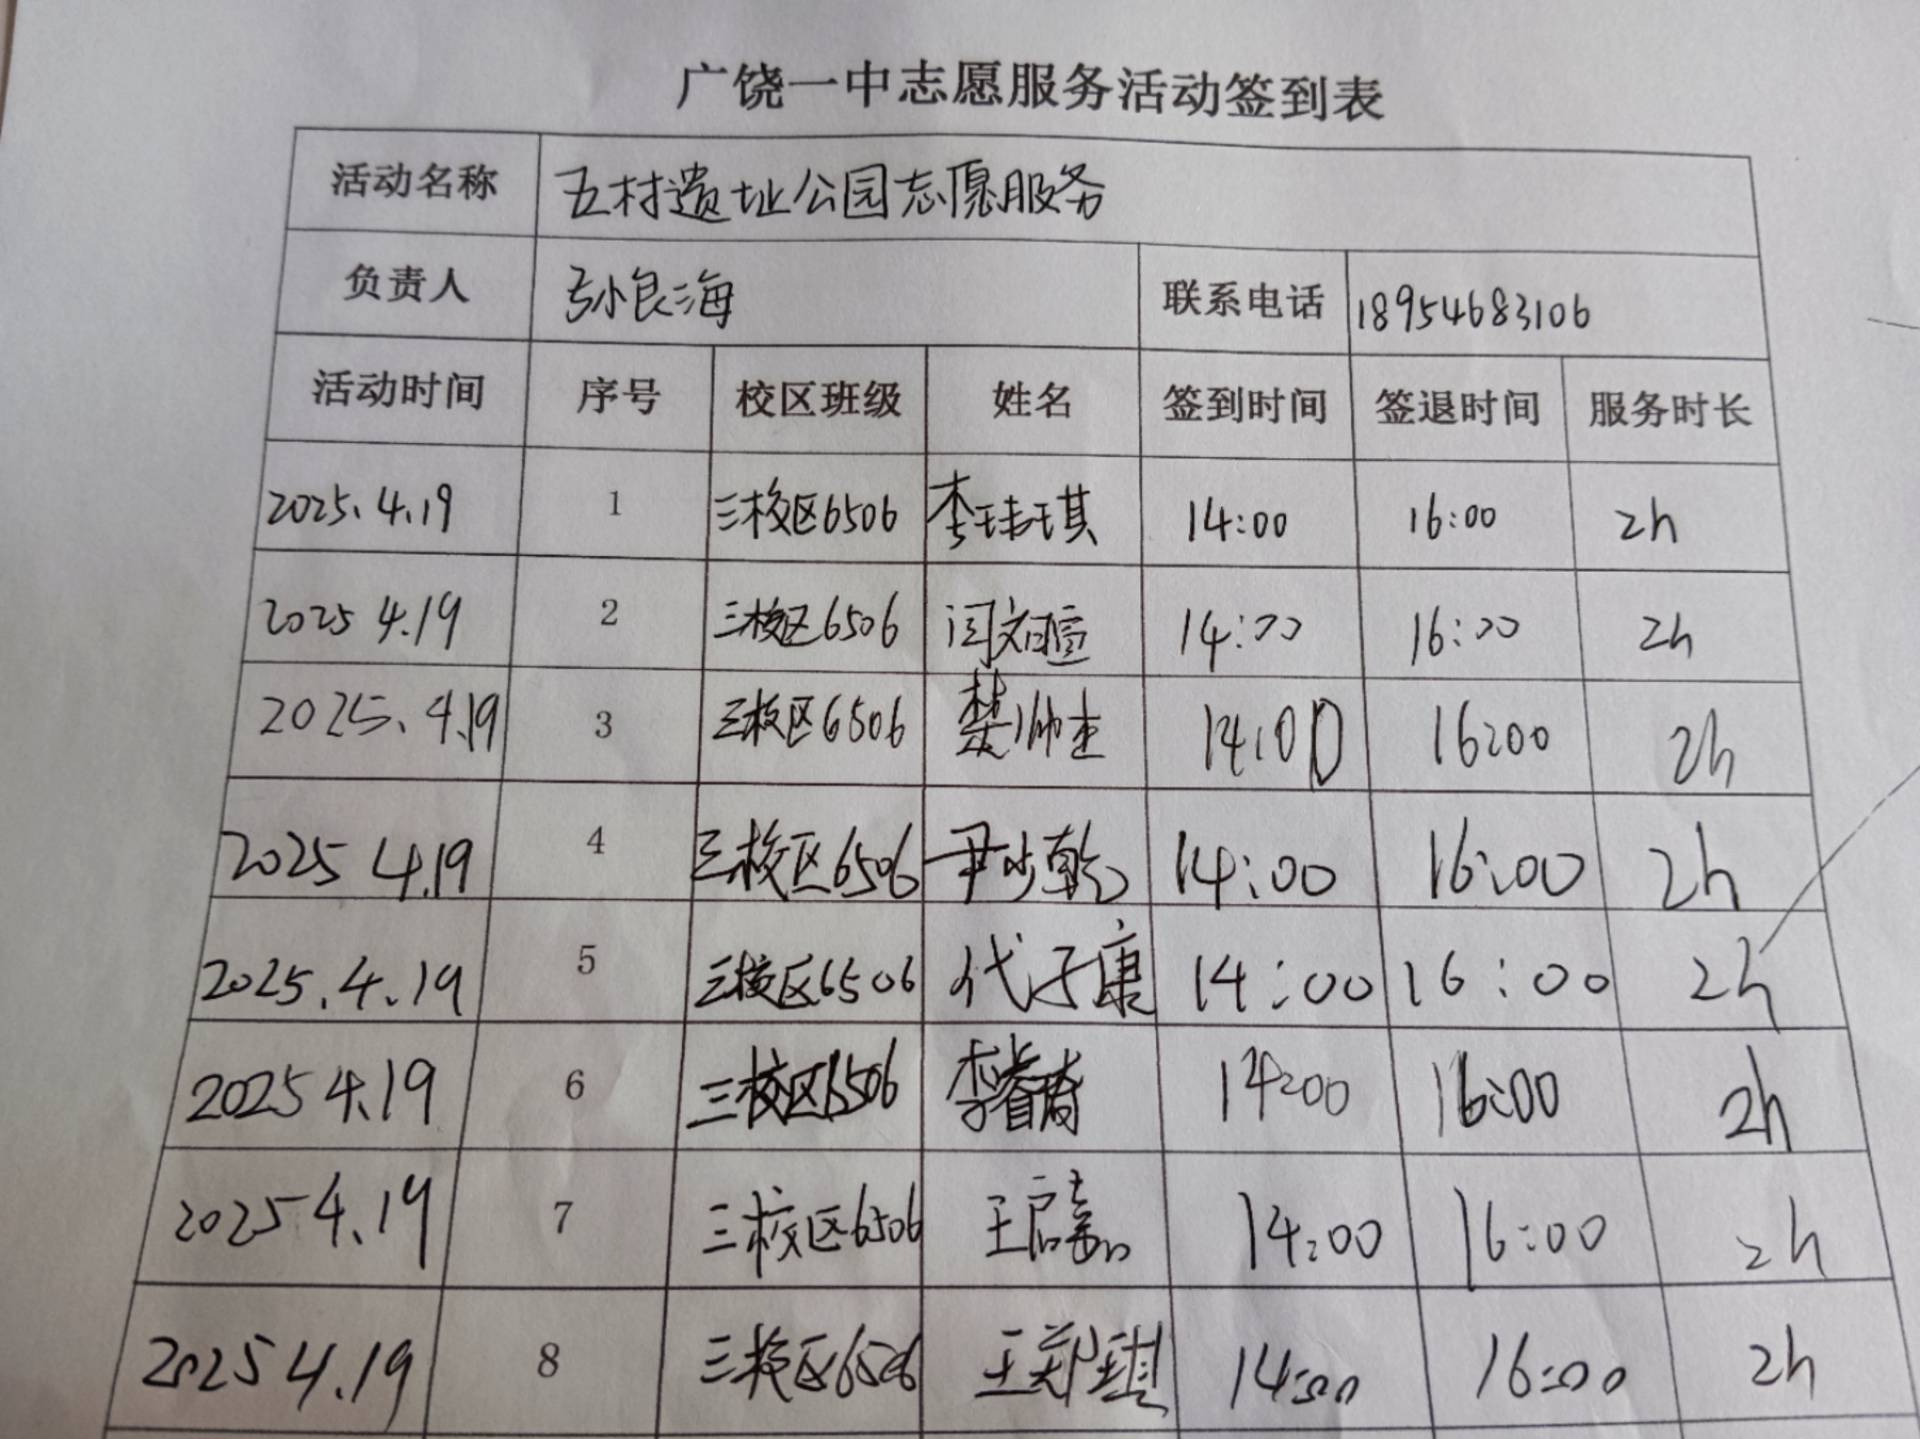 广饶一中志愿服务活动签到表
活动名称 五村遗址公园志愿服务
负责人 孙良海 联系电话 18954683106
活动时间 序号 校区班级 姓名 签到时间 签退时间 服务时长
2025.4.19 1 三校区6506 李玮琪 14:00 16:00 2h
2025 4.19 2 三校区6506 闫文暄 14:00 16:00 2h
2025.4.19 3 三校区6506 樊帅 14:00 16:00 2h
2025 4.19 4 三校区6506 尹少乾 14:00 16:00 2h
2025.4.19 5 三校区6506 代子康 14:00 16:00 2h
2025 4.19 6 三校区6506 李睿 14:00 16:00 2h
2025 4.19 7 三校区6506 王启嘉 14:00 16:00 2h
2025 4.19 8 三校区6506 王郑琪 14:00 16:00 2h